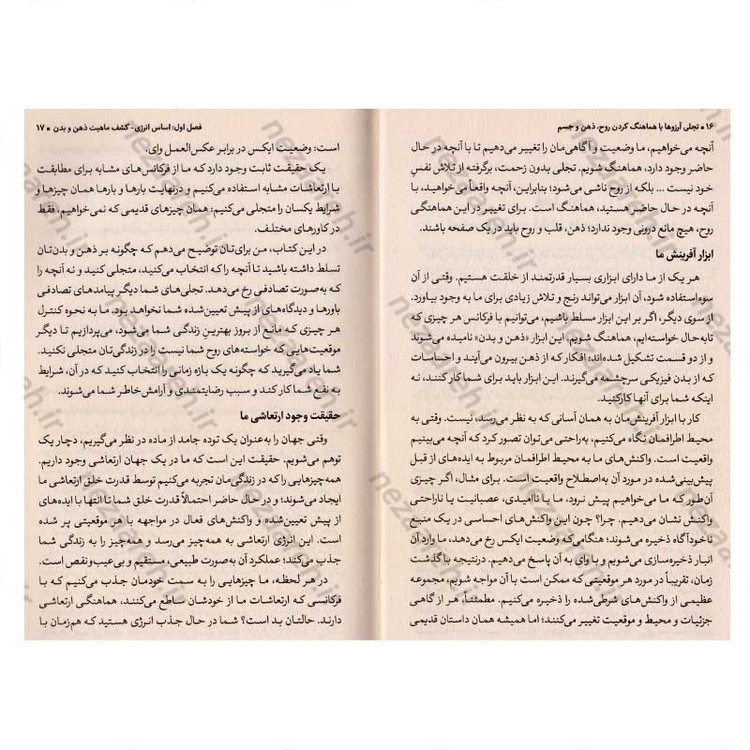 ۱۶ ■ تجلی آرزوها با هماهنگ کردن روح، ذهن و جسم
آنچه می‌خواهیم، ما وضعیت و آگاهی‌مان را تغییر می‌دهیم تا با آنچه در حال
حاضر وجود دارد، هماهنگ شویم. تجلی بدون زحمت، برگرفته از تلاش نفسِ
خود نیست ... بلکه از روح ناشی می‌شود؛ بنابراین، آنچه واقعاً می‌خواهید، با
آنچه در حال حاضر هستید، هماهنگ است. برای تغییر در این هماهنگی
روح، هیچ مانع درونی وجود ندارد؛ ذهن، قلب و روح باید در یک صفحه باشند.
ابزار آفرینش ما
هر یک از ما دارای ابزاری بسیار قدرتمند از خلقت هستیم. وقتی از آن
سوءاستفاده شود، آن ابزار می‌تواند رنج و تلاش زیادی برای ما به وجود بیاورد.
از سوی دیگر، اگر بر این ابزار مسلط باشیم، می‌توانیم با فرکانس هر چیزی که
تابه‌حال خواسته‌ایم، هماهنگ شویم. این ابزار «ذهن و بدن» نامیده می‌شوند
و از دو قسمت تشکیل شده‌اند؛ افکار که از ذهن بیرون می‌آیند و احساسات
که از بدن فیزیکی سرچشمه می‌گیرند. این ابزار باید برای شما کار کنند، نه
اینکه شما برای آنها کار کنید.
کار با ابزار آفرینش‌مان به همان آسانی که به نظر می‌رسد، نیست. وقتی به
محیط اطرافمان نگاه می‌کنیم، به‌راحتی می‌توان تصور کرد که آنچه می‌بینیم
واقعیت است. واکنش‌های ما به محیط اطرافمان مربوط به ایده‌های از قبل
پیش‌بینی‌شده در مورد آن به‌اصطلاح واقعیت است. برای مثال، اگر چیزی
آن‌طور که ما می‌خواهیم پیش نرود، ما با ناامیدی، عصبانیت یا ناراحتی
واکنش نشان می‌دهیم. چرا؟ چون این واکنش‌های احساسی در یک منبع
ناخودآگاه ذخیره می‌شوند؛ هنگامی‌که وضعیت ایکس رخ می‌دهد، ما وارد آن
انبار ذخیره‌سازی می‌شویم و با وای به آن پاسخ می‌دهیم. درنتیجه با گذشت
زمان، تقریباً در مورد هر موقعیتی که ممکن است با آن مواجه شویم، مجموعه
عظیمی از واکنش‌های شرطی‌شده را ذخیره می‌کنیم. مطمئناً، هر از گاهی
جزئیات و محیط و موقعیت تغییر می‌کنند؛ اما همیشه همان داستان قدیمی
فصل اول: اساس انرژی - کشف ماهیت ذهن و بدن ■ ۱۷
است: وضعیت ایکس در برابر عکس‌العمل وای.
یک حقیقت ثابت وجود دارد که ما از فرکانس‌های مشابه برای مطابقت
با ارتعاشات مشابه استفاده می‌کنیم و درنهایت بارها و بارها همان چیزها و
شرایط یکسان را متجلی می‌کنیم: همان چیزهای قدیمی که نمی‌خواهیم، فقط
در کاورهای مختلف.
در این کتاب، من برای‌تان توضیح می‌دهم که چگونه بر ذهن و بدن‌تان
تسلط داشته باشید تا آنچه را که انتخاب می‌کنید، متجلی کنید و نه آنچه را
که به‌صورت تصادفی رخ می‌دهد. تجلی‌های شما دیگر پیامدهای تصادفی
باورها و دیدگاه‌های از پیش تعیین‌شده شما نخواهد بود. ما به نحوه کنترل
هر چیزی که مانع از بروز بهترینِ زندگی شما می‌شود، می‌پردازیم تا دیگر
موقعیت‌هایی که خواسته‌های روح شما نیست را در زندگی‌تان متجلی نکنید.
شما یاد می‌گیرید که چگونه یک بازه زمانی را انتخاب کنید که در آن، شرایط
به نفع شما کار کند و سبب رضایتمندی و آرامش خاطر شما می‌شوند.
حقیقت وجود ارتعاشی ما
وقتی جهان را به‌عنوان یک توده جامد از ماده در نظر می‌گیریم، دچار یک
توهم می‌شویم. حقیقت این است که ما در یک جهان ارتعاشی وجود داریم.
همه‌چیزهایی را که در زندگی‌مان تجربه می‌کنیم توسط قدرت خلق ارتعاشی ما
ایجاد می‌شوند؛ و در حال حاضر احتمالاً قدرت خلق شما تا انتها با ایده‌های
از پیش تعیین‌شده و واکنش‌های فعال در مواجهه با هر موقعیتی پر شده
است. این انرژی ارتعاشی به همه‌چیز می‌رسد و همه‌چیز را به زندگی شما
جذب می‌کند؛ عملکرد آن به‌صورت طبیعی، مستقیم و بی‌عیب‌ونقص است.
در هر لحظه، ما چیزهایی را به سمت خودمان جذب می‌کنیم که با
فرکانسی که ارتعاشات ما از خودشان ساطع می‌کنند، هماهنگی ارتعاشی
دارند. حالتان بد است؟ شما در حال جذب انرژی هستید که هم‌زمان با
nezaareh.ir